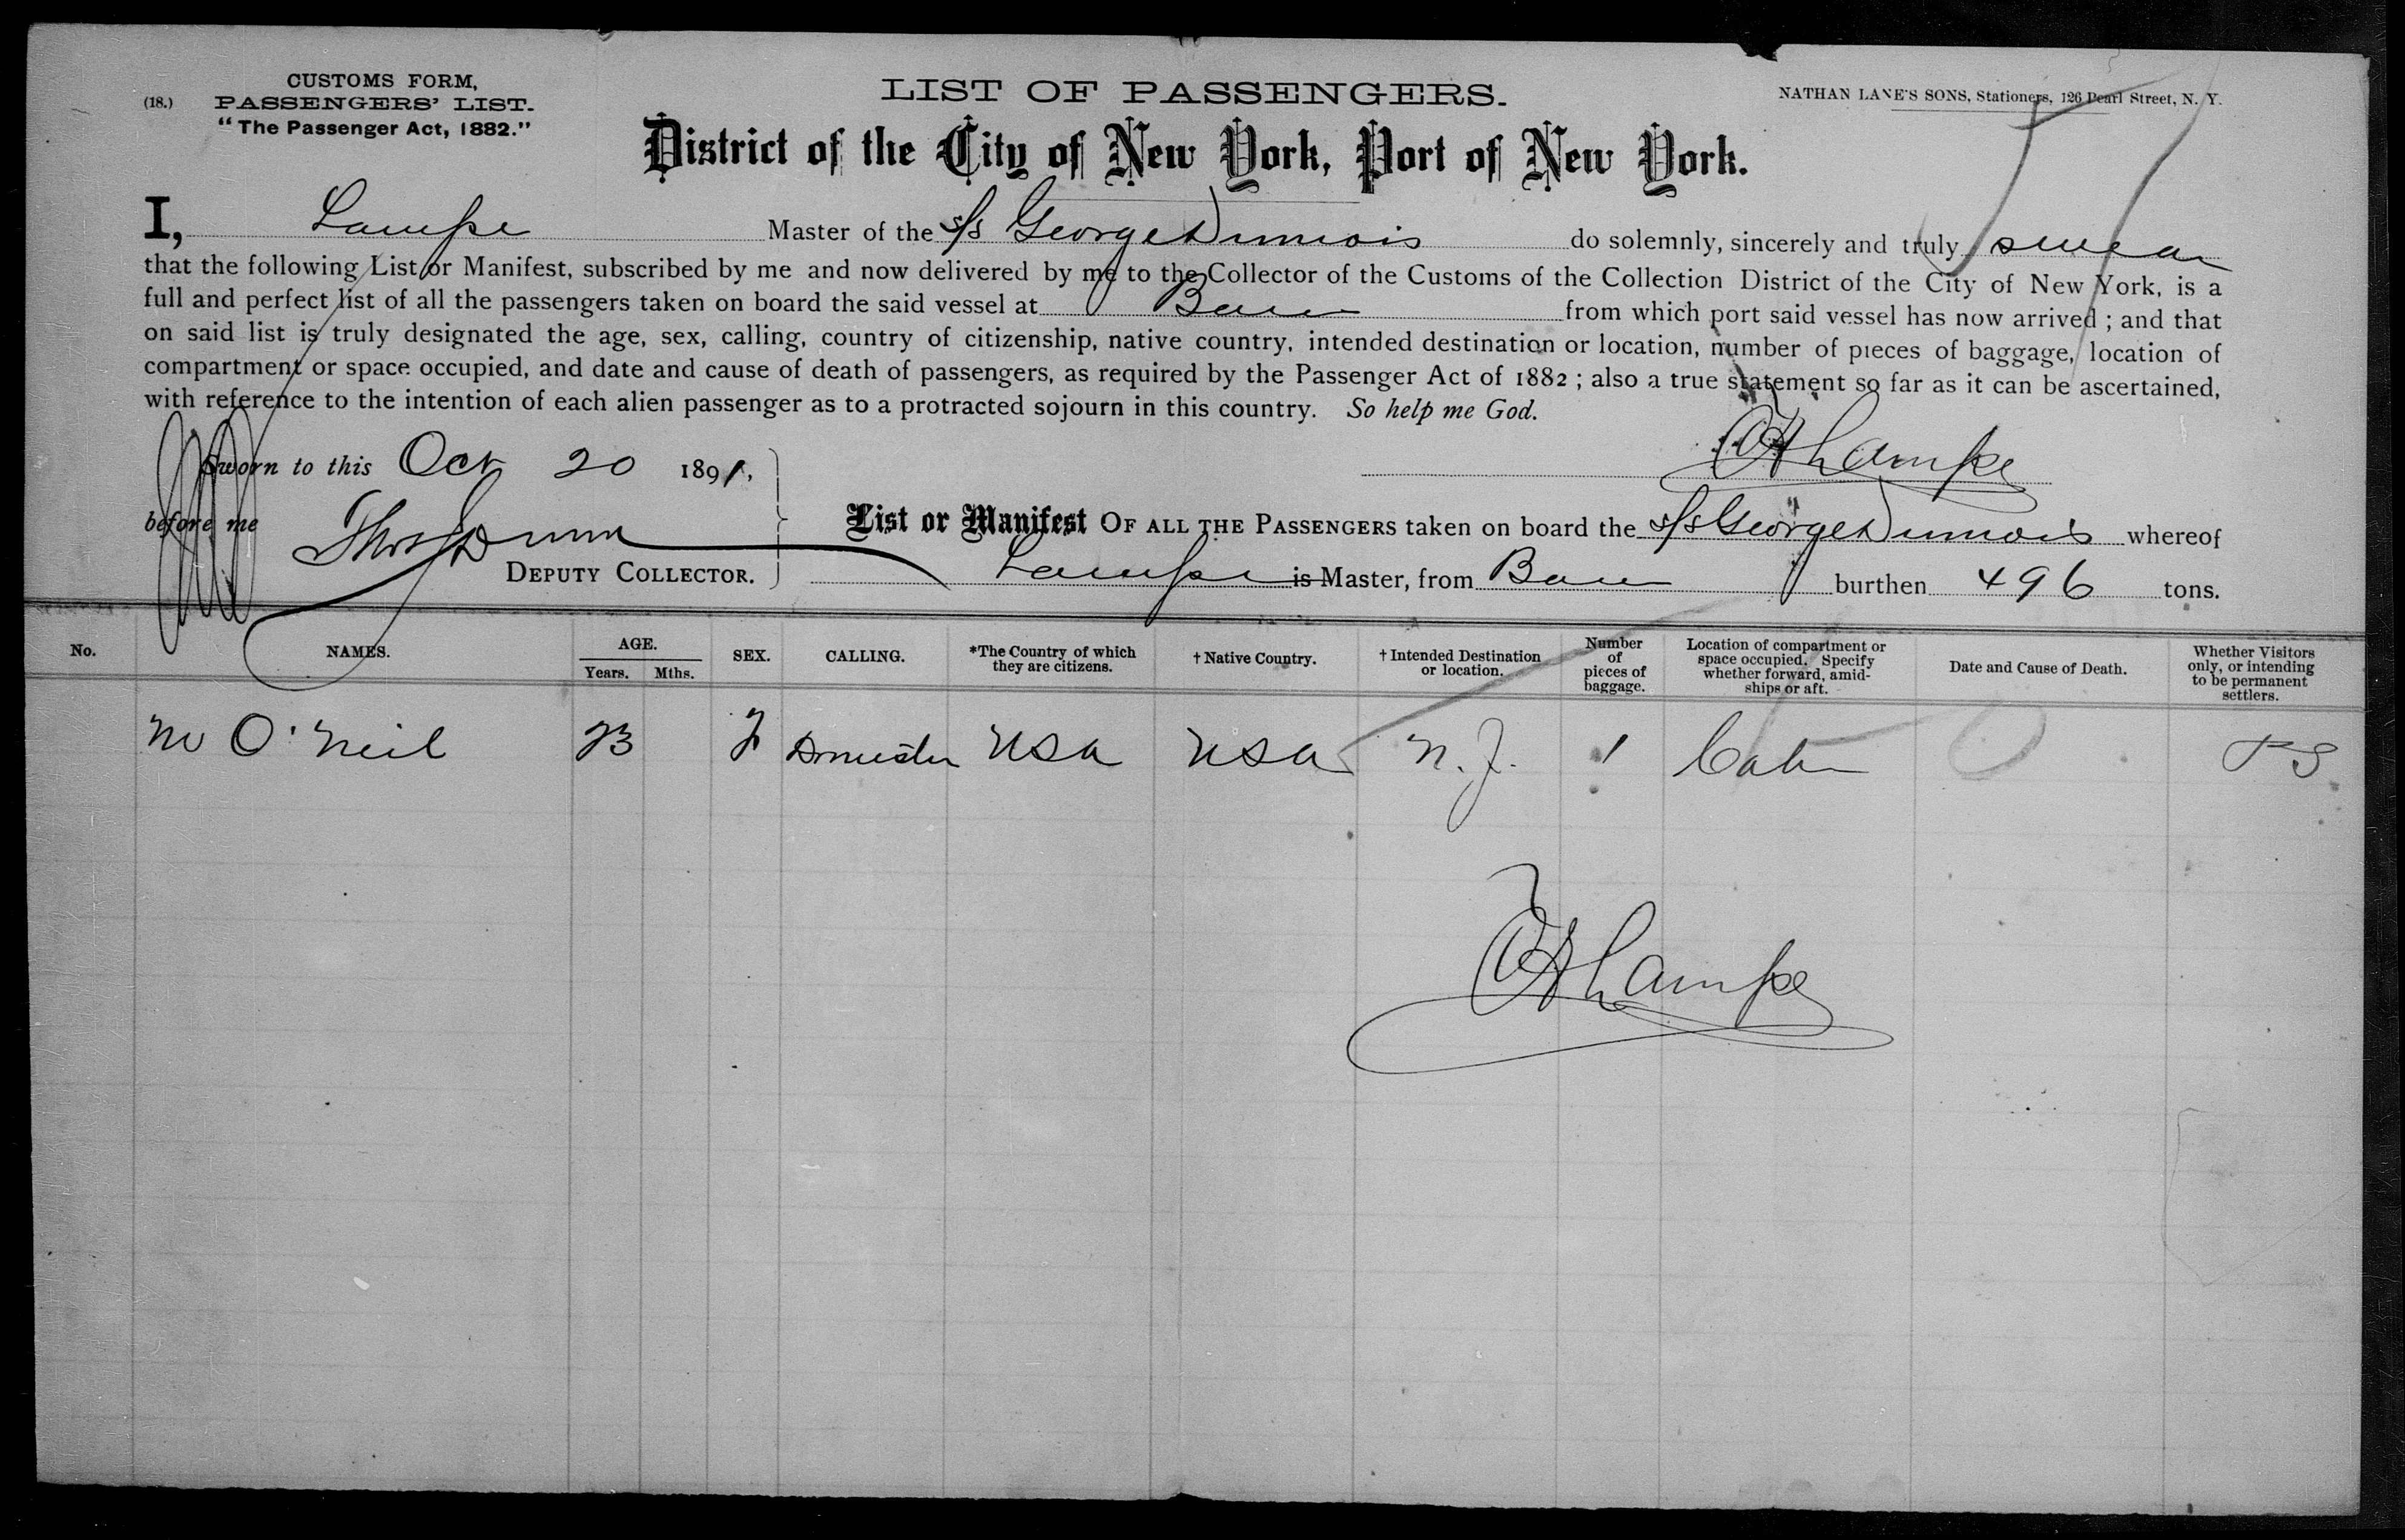 CUSTOMS FORM,
(18.) PASSENGERS' LIST.
"The Passenger Act, 1882."
LIST OF PASSENGERS.
NATHAN LANE'S SONS, Stationers, 126 Pearl Street, N. Y.
District of the City of New York, Port of New York.
I, Lampe Master of the s/s George Dumois do solemnly, sincerely and truly swear
that the following List or Manifest, subscribed by me and now delivered by me to the Collector of the Customs of the Collection District of the City of New York, is a
full and perfect list of all the passengers taken on board the said vessel at from which port said vessel has now arrived; and that
on said list is truly designated the age, sex, calling, country of citizenship, native country, intended destination or location, number of pieces of baggage, location of
compartment or space occupied, and date and cause of death of passengers, as required by the Passenger Act of 1882; also a true statement so far as it can be ascertained,
with reference to the intention of each alien passenger as to a protracted sojourn in this country. So help me God.
Sworn to this Oct 20 1891,
Lampe
before me Thos Dunn
DEPUTY COLLECTOR.
List or Manifest OF ALL THE PASSENGERS taken on board the s/s George Dumois whereof
Lampe is Master, from burthen 496 tons.
No. NAMES. AGE. Years. Mths. SEX. CALLING. *The Country of which they are citizens. †Native Country. †Intended Destination or location. Number of pieces of baggage. Location of compartment or space occupied. Specify whether forward, amidships or aft. Date and Cause of Death. Whether Visitors only, or intending to be permanent settlers.
M O'Neil 23 F Domestic USA USA N.J. 1 Cabin PS
Lampe